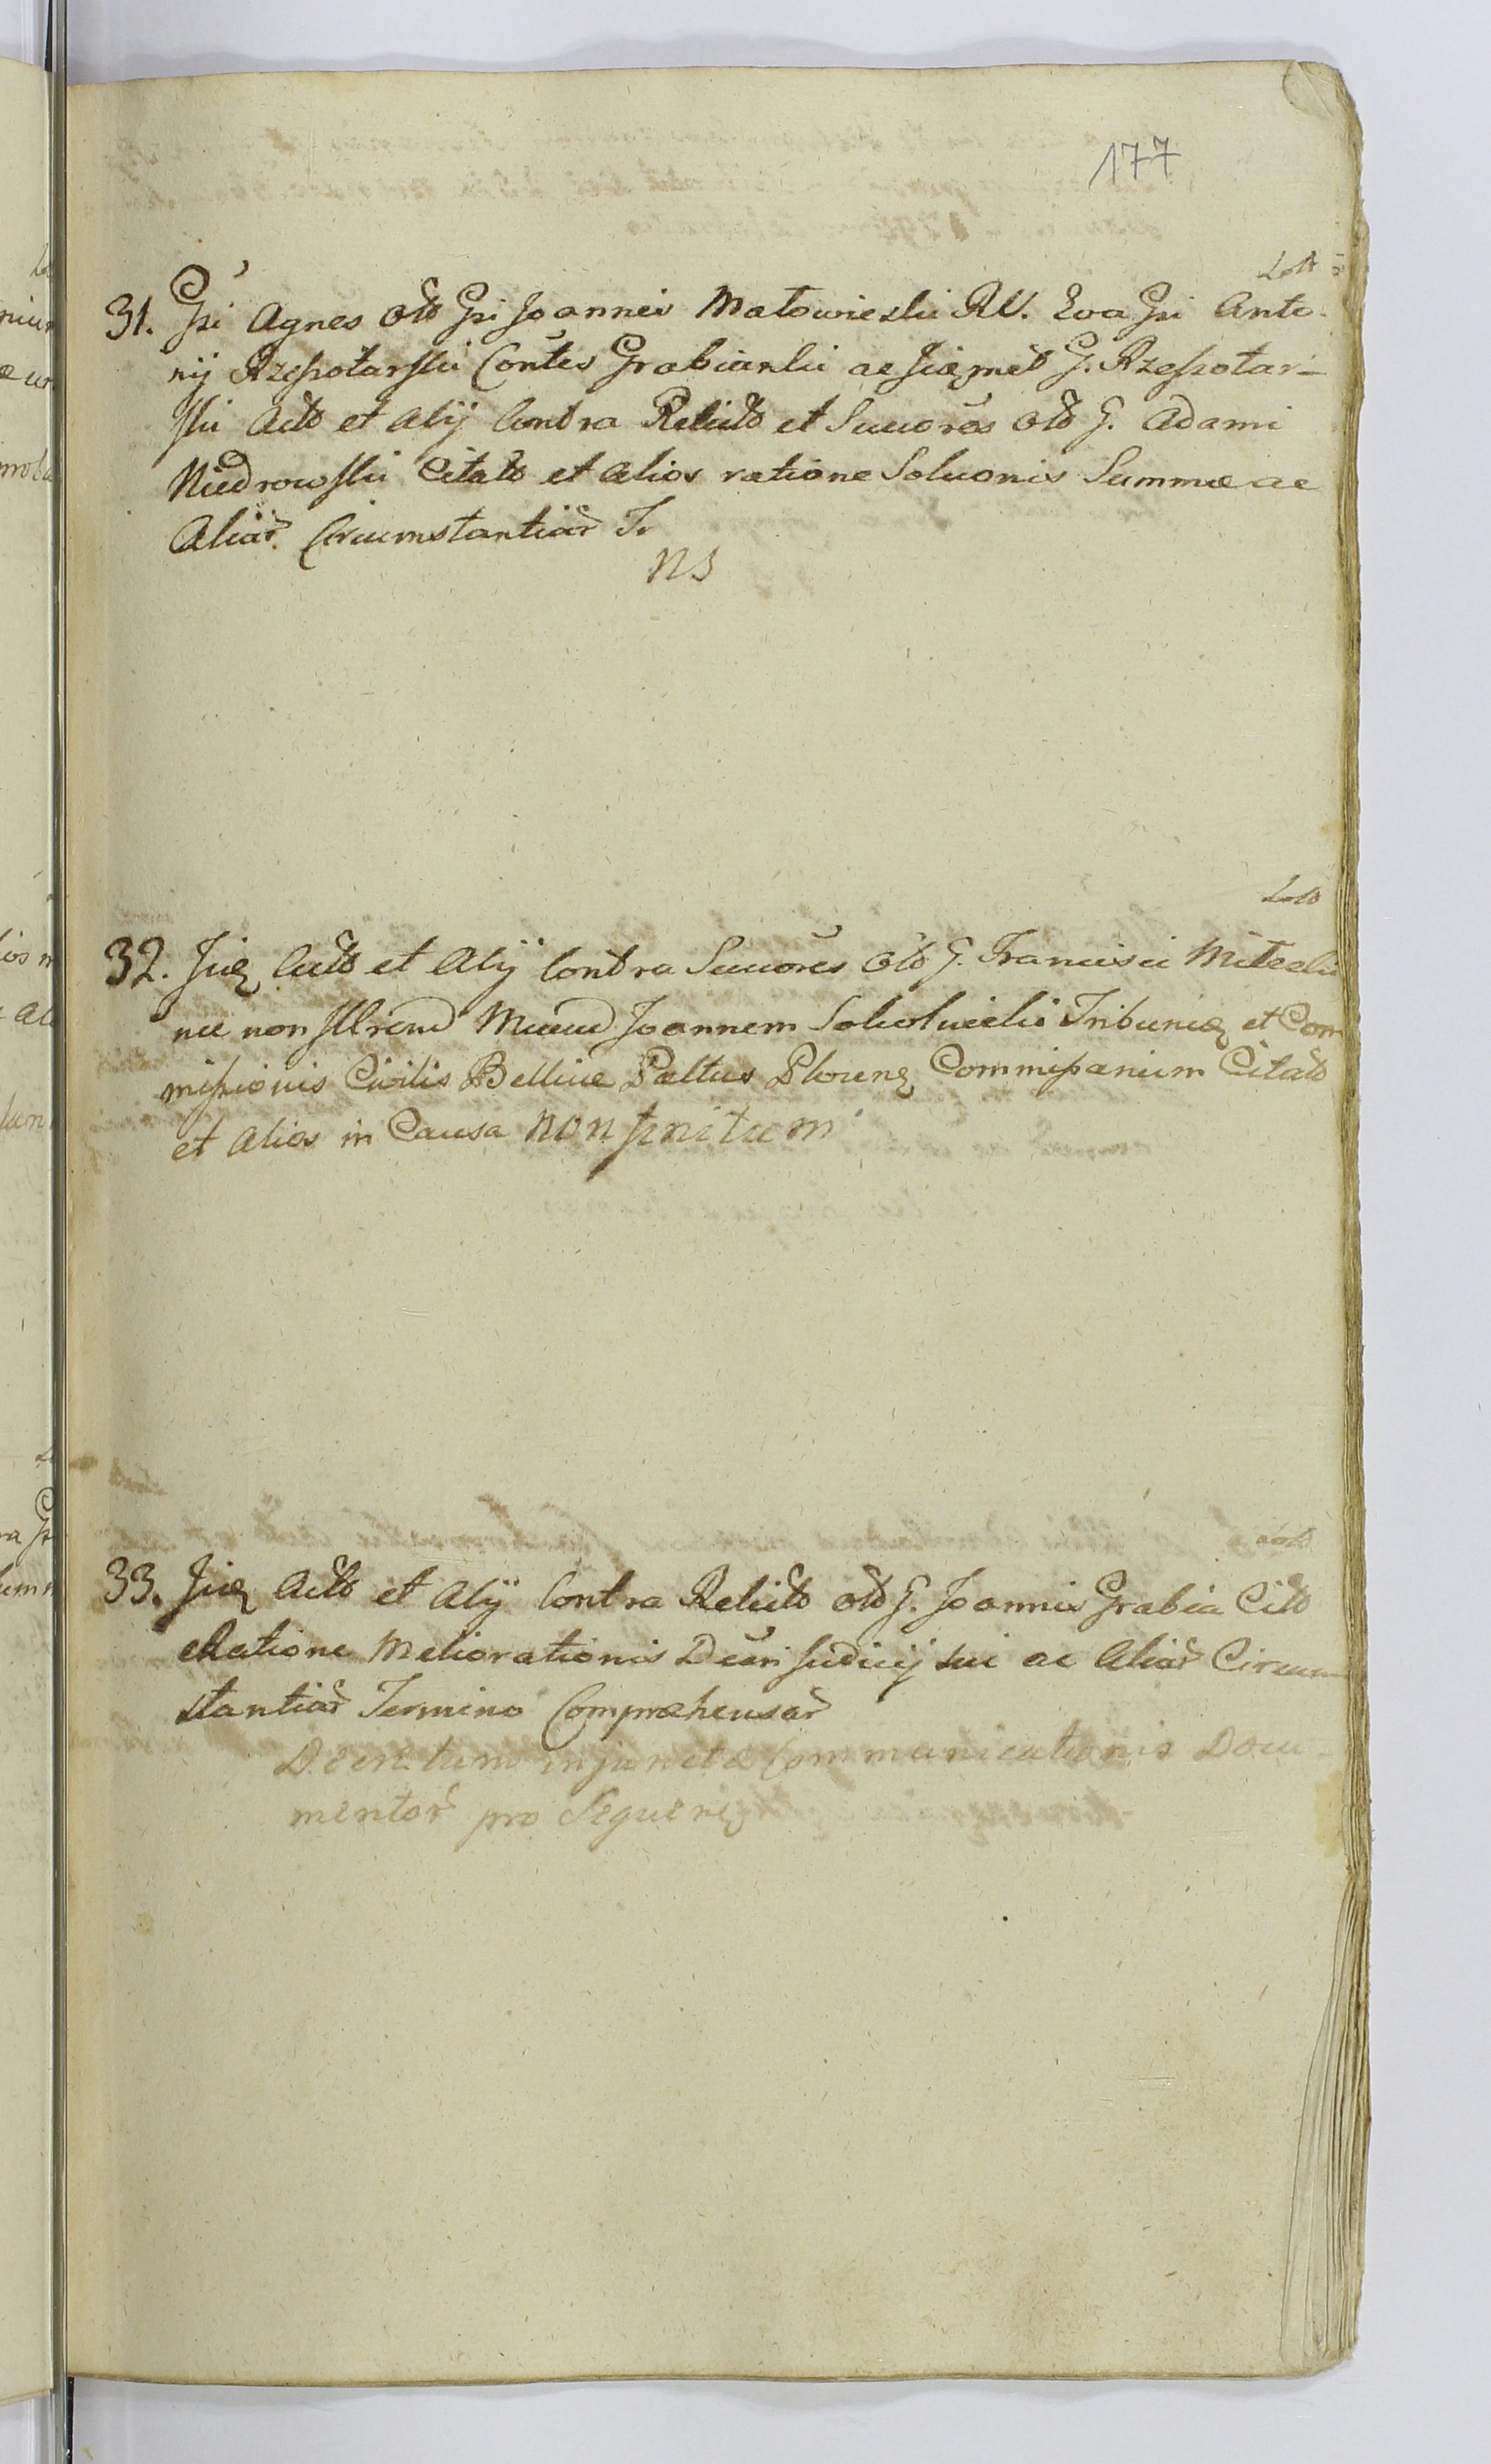 177
31. Gsi Agnes Olb Gsi Joannis Matowieski RV. Eva Gsi Anto-
nij Rzeszotarski Contes Grabianki ac Jiegmet G. Rzeszotar-
ski Actb et Alij Contra Relictb et Succores Olb G. Adami
Niedrowski Citatb et Alios ratione Soluonis Summæ ac
Aliar. Circumstantiar Tr
NS
32. Jieg Actb et Alij Contra Succores Olb G. Francisci
nec non Joannem et Com
missionis Civilis Bellicæ Paltus Plocens Commissarium Citatb
et Alios in Causa non finitam
33. Jieg Actb et Alij Contra Relictb Olb G. Joannis Grabia Citb
Ratione Meliorationis Decri Judicij sui ac Aliar Circum
stantiar Termino Compræhensar
Decretum injunctæ Communicationis Docu-
mentor pro